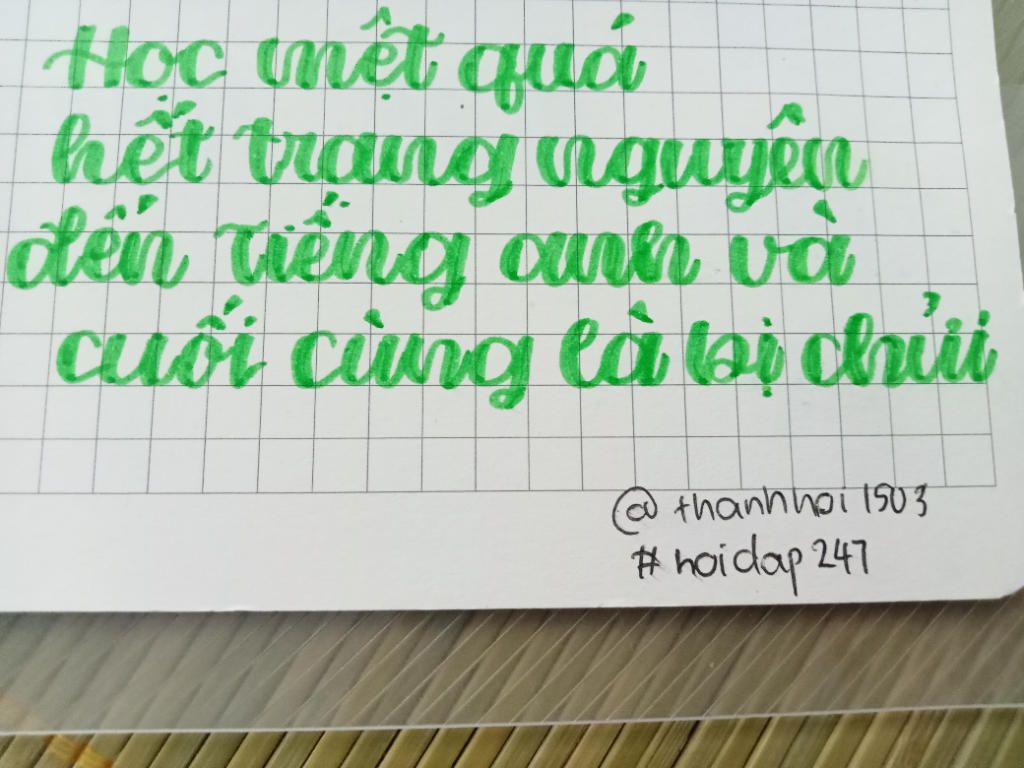 Học mệt quá
hết trang nguyên
đến tiếng anh và
cuối cùng là bị chửi
@thanhhoi1503
#hoidap247